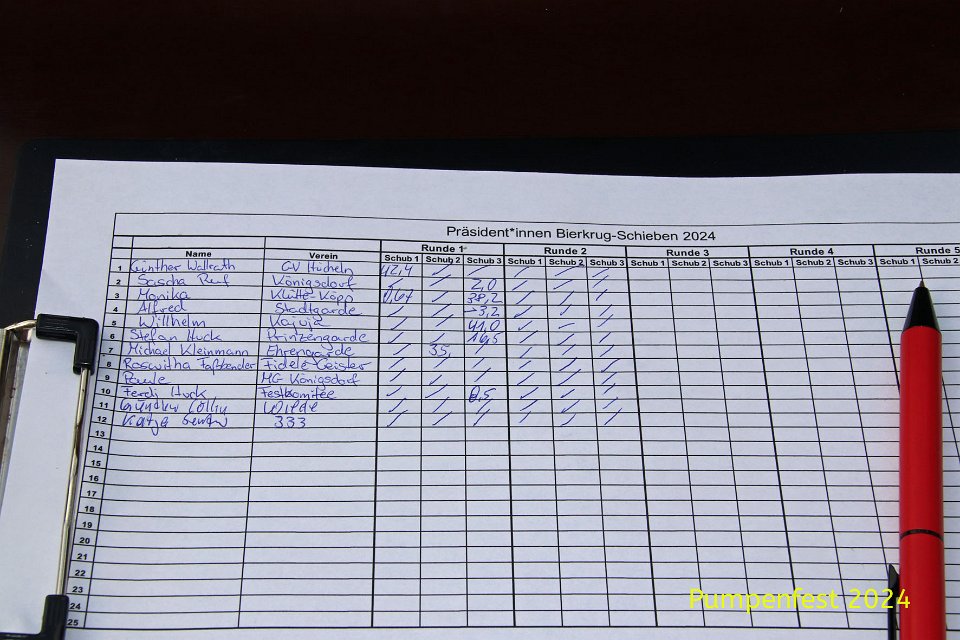 Präsident*innen Bierkrug-Schieben 2024
Runde 1 Runde 2 Runde 3 Runde 4 Runde 5
Name Verein Schub 1 Schub 2 Schub 3 Schub 1 Schub 2 Schub 3 Schub 1 Schub 2 Schub 3 Schub 1 Schub 2 Schub 3 Schub 1 Schub 2
1 Günther Wallrath GV Hücheln 42,4 / / / / /
2 Sascha Ruf Königsdorf / / 2,0 / / /
3 Monika Klütte-Köpp 0,67 / 38,2 / / /
4 Alfred Stadtgarde / / -3,2 / / /
5 Willhelm Kajuja / / 41,0 / - /
6 Stefan Huck Prinzengarde / / 16,5 / / /
7 Michael Kleinmann Ehrengarde / 35, / / / /
8 Roswitha Faßbender Fidele Geister / / / / / /
9 Paule MG Königsdorf / / / / / /
10 Ferdi Huck Festkomitee / / 0,5 / / /
11 Günther Wilde / / / / / /
12 Katja 333 / / / / / /
13
14
15
16
17
18
19
20
21
22
23
24
25
Pumpenfest 2024